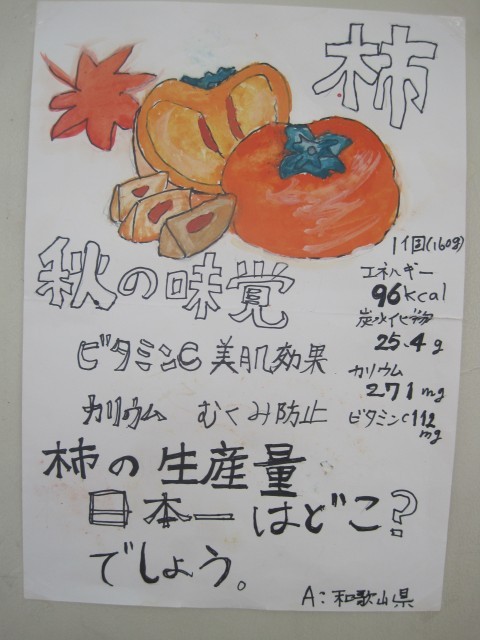 柿
秋の味覚
1個(160g)
エネルギー
96kcal
炭水化物
25.4g
カリウム
271mg
ビタミンC112
mg
ビタミンC 美肌効果
カリウム むくみ防止
柿の生産量
日本一はどこ?
でしょう。
A:和歌山県